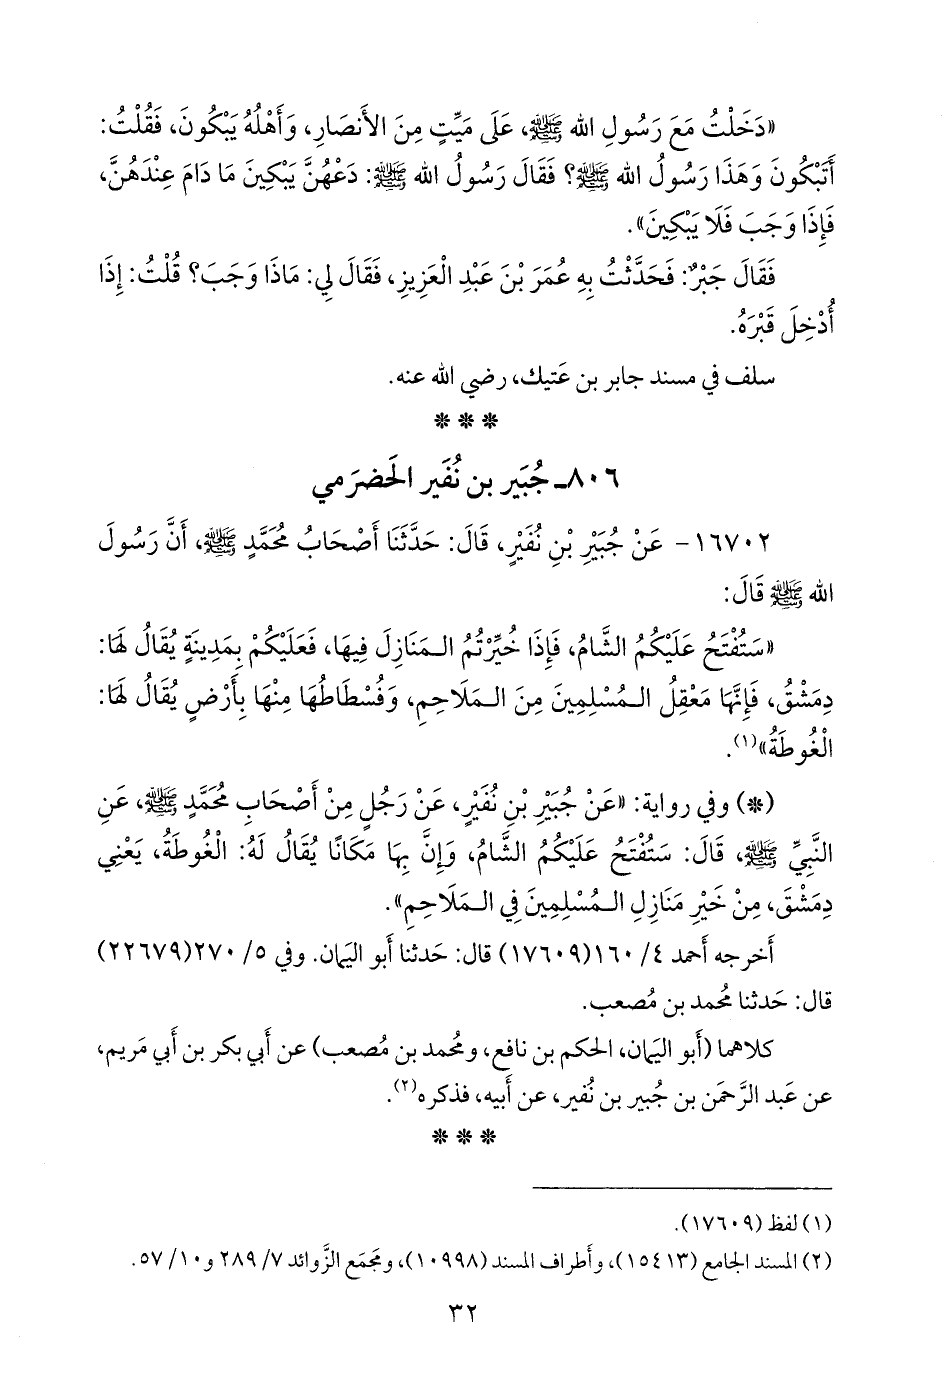 «دَخَلْتُ مَعَ رَسُولِ الله ﷺ، عَلَى مَيِّتٍ مِنَ الأَنصَارِ، وَأَهْلُهُ يَبْكُونَ، فَقُلْتُ:
أَتَبْكُونَ وَهَذَا رَسُولُ الله ﷺ؟ فَقَالَ رَسُولُ الله ﷺ: دَعْهُنَّ يَبْكِينَ مَا دَامَ عِنْدَهُنَّ،
فَإِذَا وَجَبَ فَلَا يَبْكِينَ».
فَقَالَ جَبْرٌ: فَحَدَّثْتُ بِهِ عُمَرَ بْنَ عَبْدِ الْعَزِيزِ، فَقَالَ لِي: مَاذَا وَجَبَ؟ قُلْتُ: إِذَا
أُدْخِلَ قَبْرَهُ.
سلف في مسند جابر بن عَتيك، رضي الله عنه.
* * *
٨٠٦ـ جُبَير بن نُفَير الحَضرَمي
١٦٧٠٢- عَنْ جُبَيْرِ بْنِ نُفَيْرٍ، قَالَ: حَدَّثَنَا أَصْحَابُ مُحَمَّدٍ ﷺ، أَنَّ رَسُولَ
الله ﷺ قَالَ:
«سَتُفْتَحُ عَلَيْكُمُ الشَّامُ، فَإِذَا خُيِّرْتُمُ الـمَنَازِلَ فِيهَا، فَعَلَيْكُمْ بِمَدِينَةٍ يُقَالُ لَهَا:
دِمَشْقُ، فَإِنَّهَا مَعْقِلُ الـمُسْلِمِينَ مِنَ الـمَلَاحِمِ، وَفُسْطَاطُهَا مِنْهَا بِأَرْضٍ يُقَالُ لَهَا:
الْغُوطَةُ»(١).
(*) وفي رواية: «عَنْ جُبَيْرِ بْنِ نُفَيْرٍ، عَنْ رَجُلٍ مِنْ أَصْحَابِ مُحَمَّدٍ ﷺ، عَنِ
النَّبِيِّ ﷺ، قَالَ: سَتُفْتَحُ عَلَيْكُمُ الشَّامُ، وَإِنَّ بِهَا مَكَانًا يُقَالُ لَهُ: الْغُوطَةُ، يَعْنِي
دِمَشْقَ، مِنْ خَيْرِ مَنَازِلِ الـمُسْلِمِينَ فِي الـمَلَاحِمِ».
أخرجه أحمد ٤/ ١٦٠(١٧٦٠٩) قال: حَدثنا أَبو اليَمان. وفي ٥/ ٢٧٠(٢٢٦٧٩)
قال: حَدثنا مُحمد بن مُصعب.
كلاهما (أَبو اليَمان، الحكم بن نافع، ومُحمد بن مُصعب) عن أَبي بكر بن أَبي مَريم،
عن عَبد الرَّحمَن بن جُبير بن نُفير، عن أَبيه، فذكره(٢).
* * *
(١) لفظ (١٧٦٠٩).
(٢) المسند الجامع (١٥٤١٣)، وأَطراف المسند (١٠٩٩٨)، ومَجمَع الزَّوائد ٧/ ٢٨٩ و١٠/ ٥٧.
٣٢